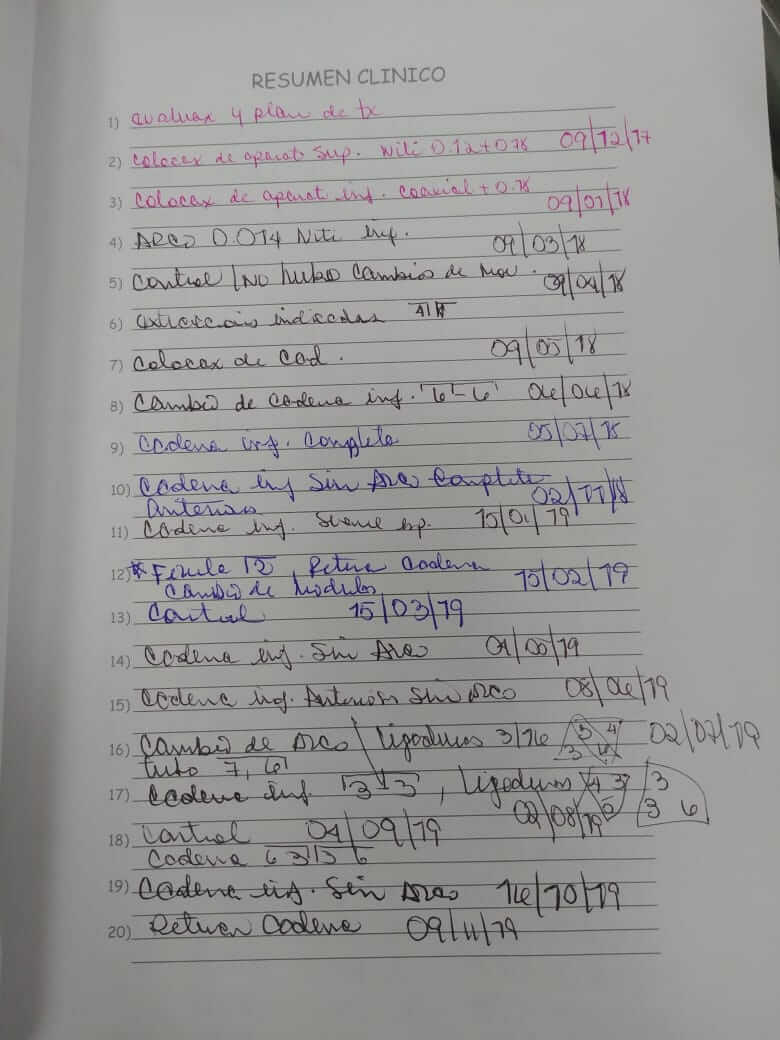 RESUMEN CLINICO
1) evaluax y plan de tx
2) Colocax de aparat Sup. Niti 0.12 + 0.18 09/12/17
3) Colocax de aparat inf. coaxial + 0.18 09/01/18
4) ARCO 0.014 Niti inf. 09/03/18
5) Control / NO hubo Cambios de 09/04/18
6) indicadas
7) Colocax de Cad. 09/05/18
8) Cambio de cadena inf. 6-6 06/06/18
9) Cadena inf. Completa 05/07/18
10) Cadena inf Sin Arco Complete 02/11/18
Anterior
11) Cadena inf. 15/01/19
12) * Ferula , Retirar Cadena 15/02/19
Cambio de Modulos
13) Control 15/03/19
14) Cadena inf. Sin Arco
15) Cadena inf. Anterior Sin Arco 08/06/19
16) Cambio de Arco / ligaduras 3/16 02/07/19
tubo 7, 6
17) Cadena inf. 3 3, ligaduras 4 3 3
02/08/19 3 6
18) Control 04/09/19
Cadena 6 3 3 6
19) Cadena inf. Sin Arco 16/10/19
20) Cadena 09/11/19